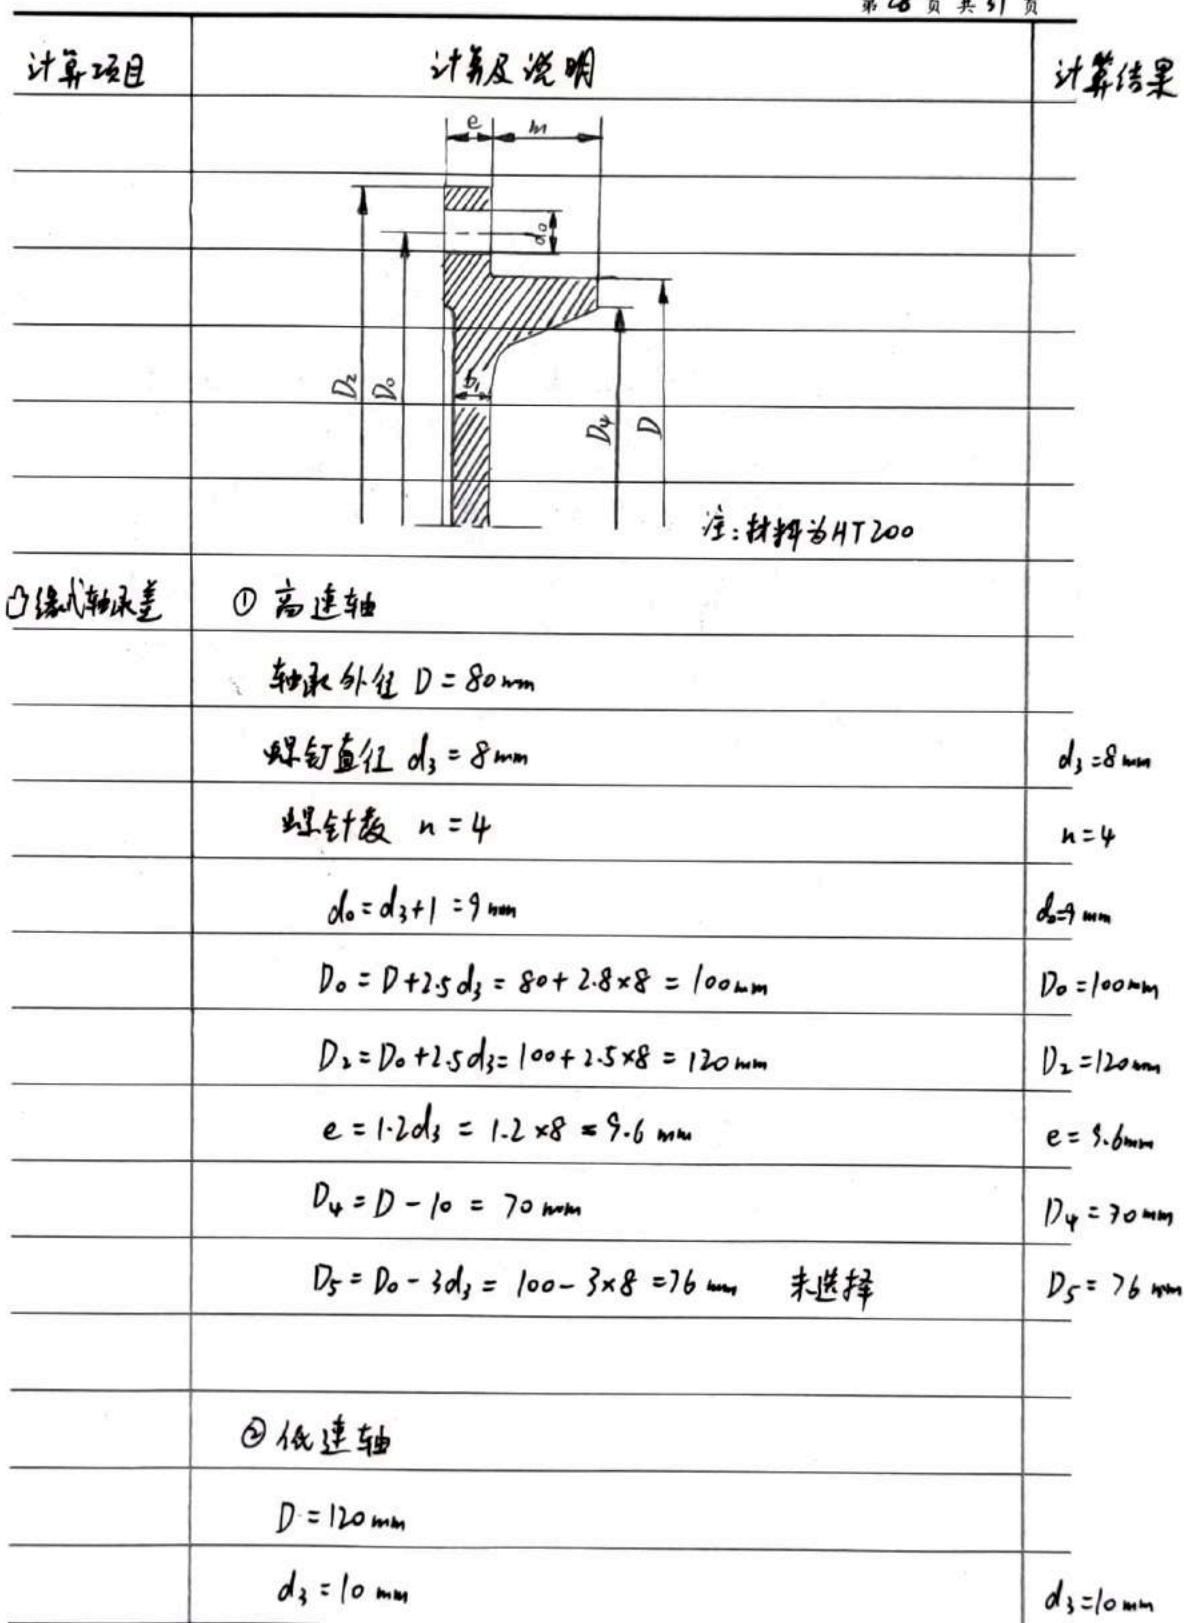 第 28 页 共 31 页
计算项目 计算及说明 计算结果
e m
d0
D2 D0 b1 D4 D
注:材料为HT200
凸缘式轴承盖 ① 高速轴
轴承外径 D=80mm
螺钉直径 d3=8mm d3=8mm
螺针数 n=4 n=4
d0=d3+1=9mm d0=9mm
D0=D+2.5d3=80+2.8×8=100mm D0=100mm
D2=D0+2.5d3=100+2.5×8=120mm D2=120mm
e=1.2d3=1.2×8=9.6mm e=9.6mm
D4=D-10=70mm D4=70mm
D5=D0-3d3=100-3×8=76mm 未选择 D5=76mm
② 低速轴
D=120mm
d3=10mm d3=10mm